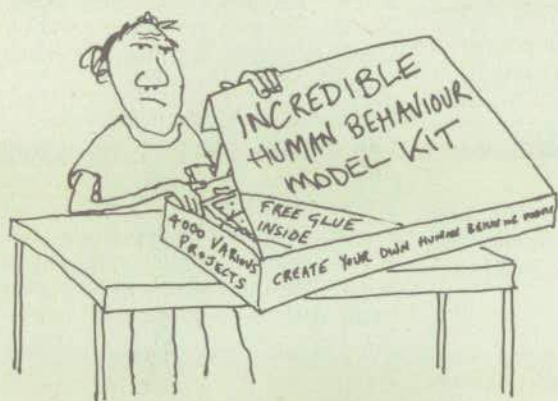 INCREDIBLE
HUMAN BEHAVIOUR
MODEL KIT
FREE GLUE
INSIDE
4000 VARIOUS
PROJECTS
CREATE YOUR OWN HUMAN BEHAVIOUR MODELS